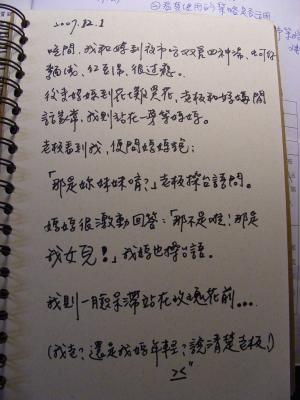 2007.12.1
晚間,我和媽到夜市吃四神湯、
麵線、紅豆湯,很過癮。
後來媽媽到花攤買花,老板和媽媽閒
話家常,我則站在一旁等媽媽。
老板看到我,便問媽媽說:
「那是妳妹妹唷?」老板操台語問。
媽媽很激動回答:「那不是啦!那是
我女兒!」我媽也操台語。
我則一臉呆滯站在玫瑰花前...
(我老?還是我媽年輕?說清楚老板!)
><"